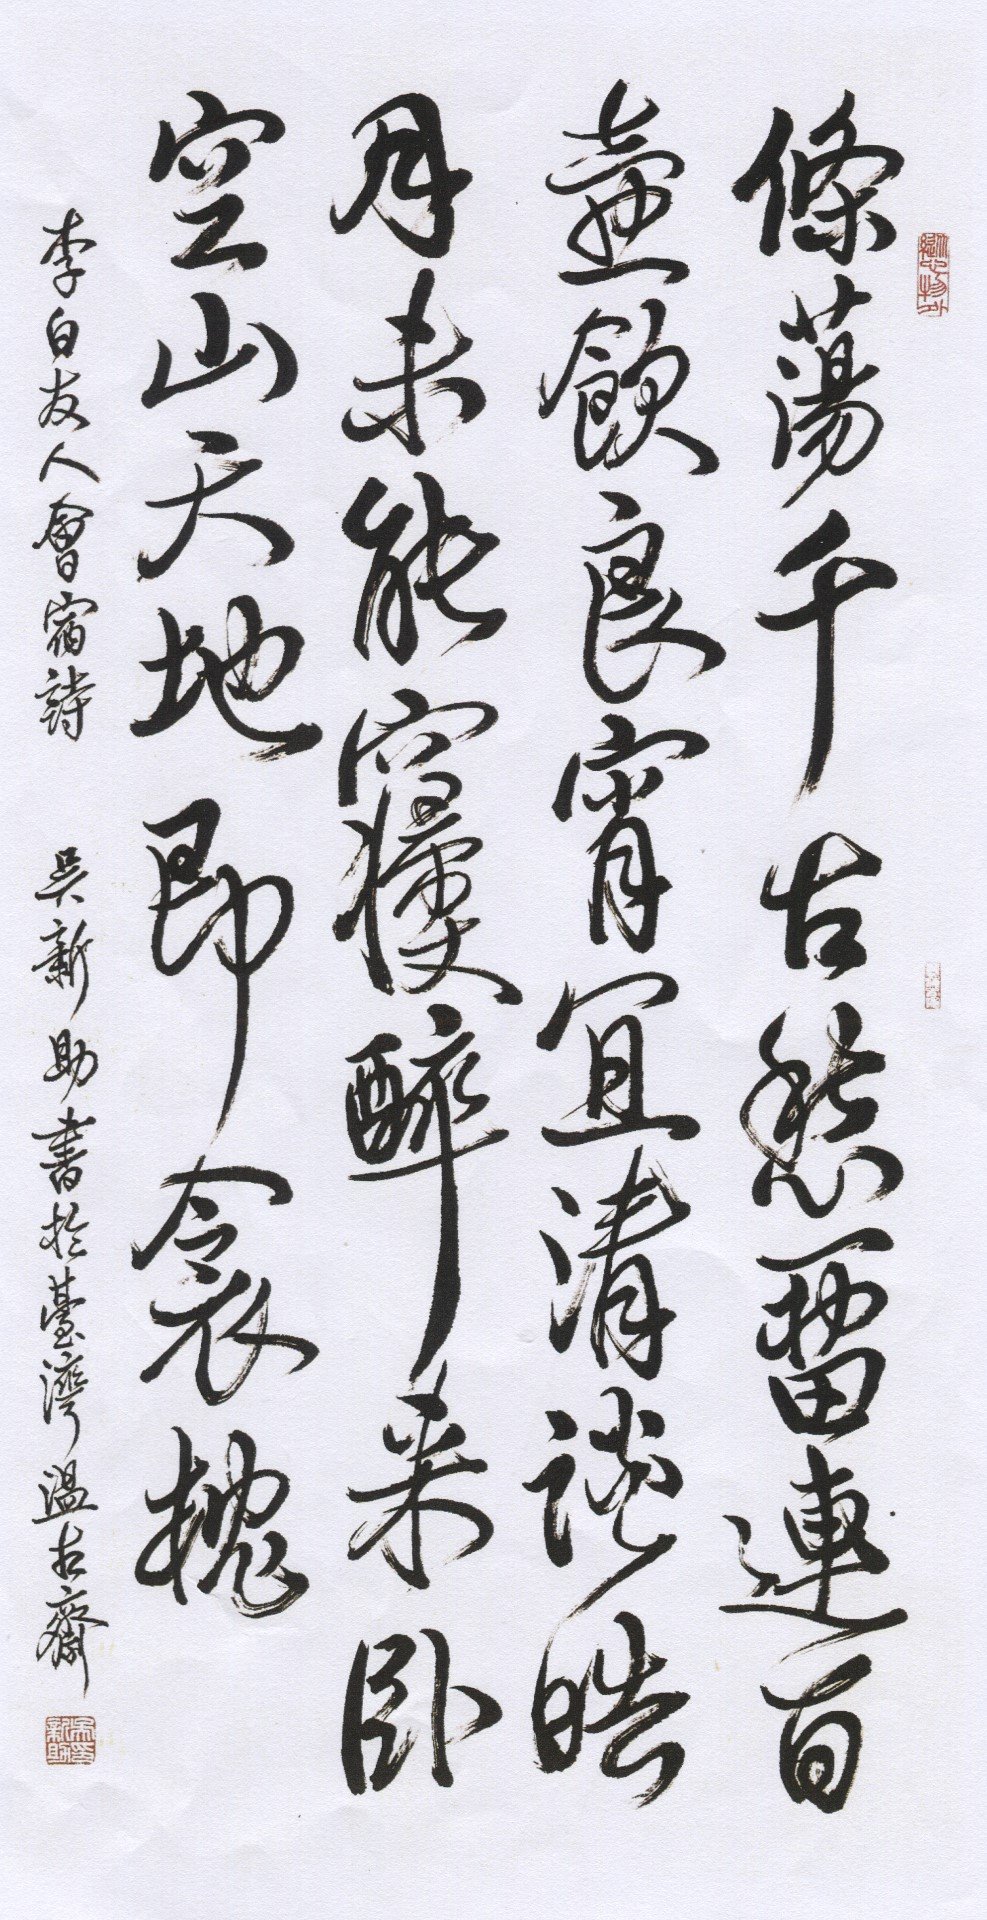 滌蕩千古愁畱連百
壺飲良宵宜清談皓
月未能寢醉來臥
空山天地即衾枕
李白友人會宿詩　吳新助書於臺灣溫古齋
吳新助印